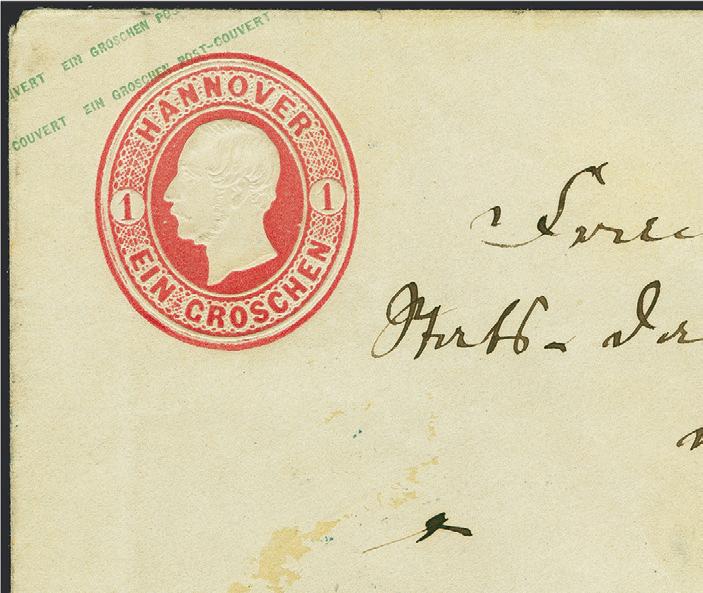 UVERT EIN GROSCHEN POS
COUVERT EIN GROSCHEN POST-COUVERT
HANNOVER
1 1
EIN-GROSCHEN
Stabs-